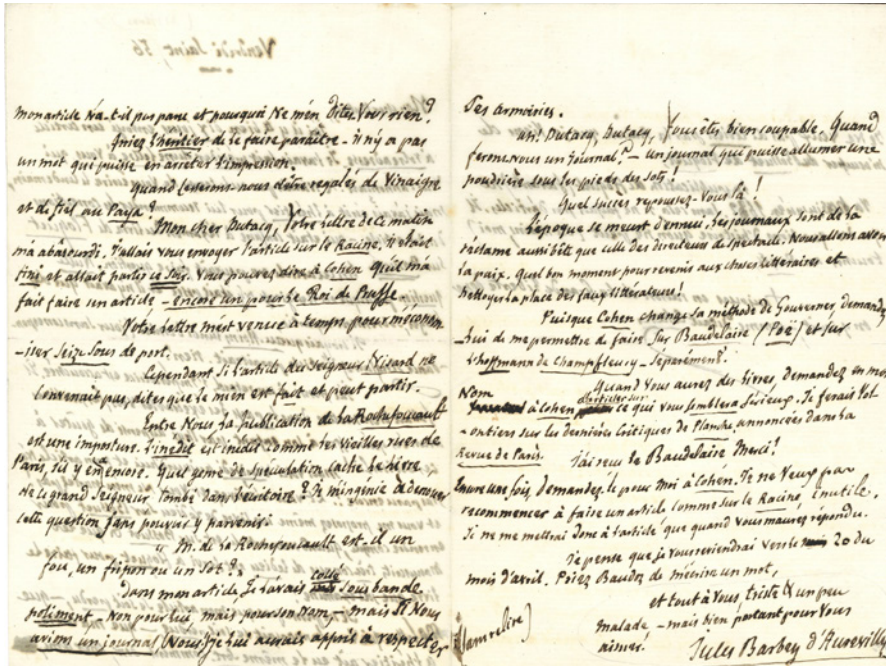 Vendredi Saint, 56
mon article n'a-t-il pas paru et pourquoi ne m'en dites vous rien?
Priez l'héritier de le faire paraître - il n'y a pas
un mot qui puisse en arrêter l'impression.
Quand cesserons-nous d'être régalés de vinaigre
et de fiel au Pays?
Mon cher Dutacq, Votre lettre de ce matin
m'a abasourdi. J'allais vous envoyer l'article sur le Racine, il était
fini et allait partir ce soir. Vous pouvez dire à Cohen qu'il m'a
fait faire un article - encore un pour le Roi de Prusse.
Votre lettre m'est venue à temps pour m'écono
-miser seize sous de port.
Cependant si l'article du seigneur Nisard ne
convenait pas, dites que le mien est fait et peut partir.
Entre nous la publication de La Rochefoucault
est une imposture. L'inédit est inédit comme les vieilles rues de
Paris, s'il y en a encore. Quel genre de spéculation cache le
ce grand Seigneur tombé dans l'écritoire? Je m'ingénie à creuser
cette question sans pouvoir y parvenir:
" M. de la Rochefoucault est-il un
fou, un fripon ou un sot?"
Dans mon article je l'avais collé sous bande
poliment - non pour lui, mais pour son nom, - mais si nous
avions un journal (nous!) je lui aurais appris à respecter
ses armoiries.
Ah! Dutacq, Dutacq, vous êtes bien coupable. Quand
ferons-nous un journal? - un journal qui puisse allumer une
poudrière sous les pieds des sots!
Quel succès repoussez-vous là!
L'époque se meurt d'ennui. Les journaux sont de la
réclame aussi bête que celle des directeurs de spectacle. Nous allons avoir
la paix. Quel bon moment pour revenir aux choses littéraires et
nettoyer la place des faux littérateurs!
Puisque Cohen change sa méthode de gouverner, demandez
-lui de me permettre de faire sur Baudelaire (Poë) et sur
l'hoffmann de Champfleury - séparément.
Quand vous aurez des livres, demandez en mon
Nom à Cohen d'articler sur ce qui vous semblera sérieux. Je ferais vol
-ontiers sur les dernières Critiques de Planche, annoncées dans la
Revue de Paris.
J'ai reçu le Baudelaire Merci!
Encore une fois, demandez le pour moi à Cohen. Je ne veux pas
recommencer à faire un article comme sur le Racine, inutile.
Je ne me mettrai donc à l'article que quand vous m'aurez répondu.
Je pense que je vous reviendrai vers le 20 du
mois d'avril. Priez Baudry de m'écrire un mot,
et tout à vous, triste & un peu
malade - mais bien portant pour vous
aimer!
(sans relire)
Jules Barbey d'Aurevilly